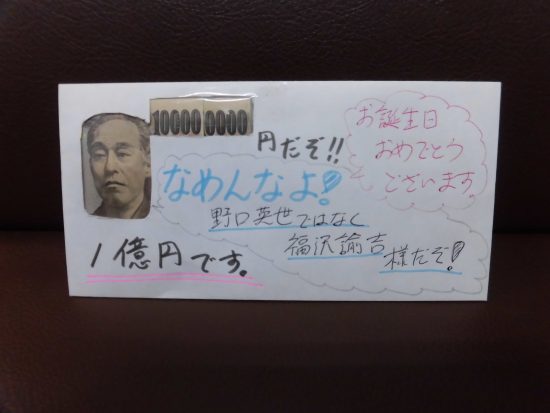 10000 0000
円だぞ!!
お誕生日
おめでとう
ございます。
なめんなよ!
野口英世ではなく
福沢諭吉
様だぞ!
1億円です。